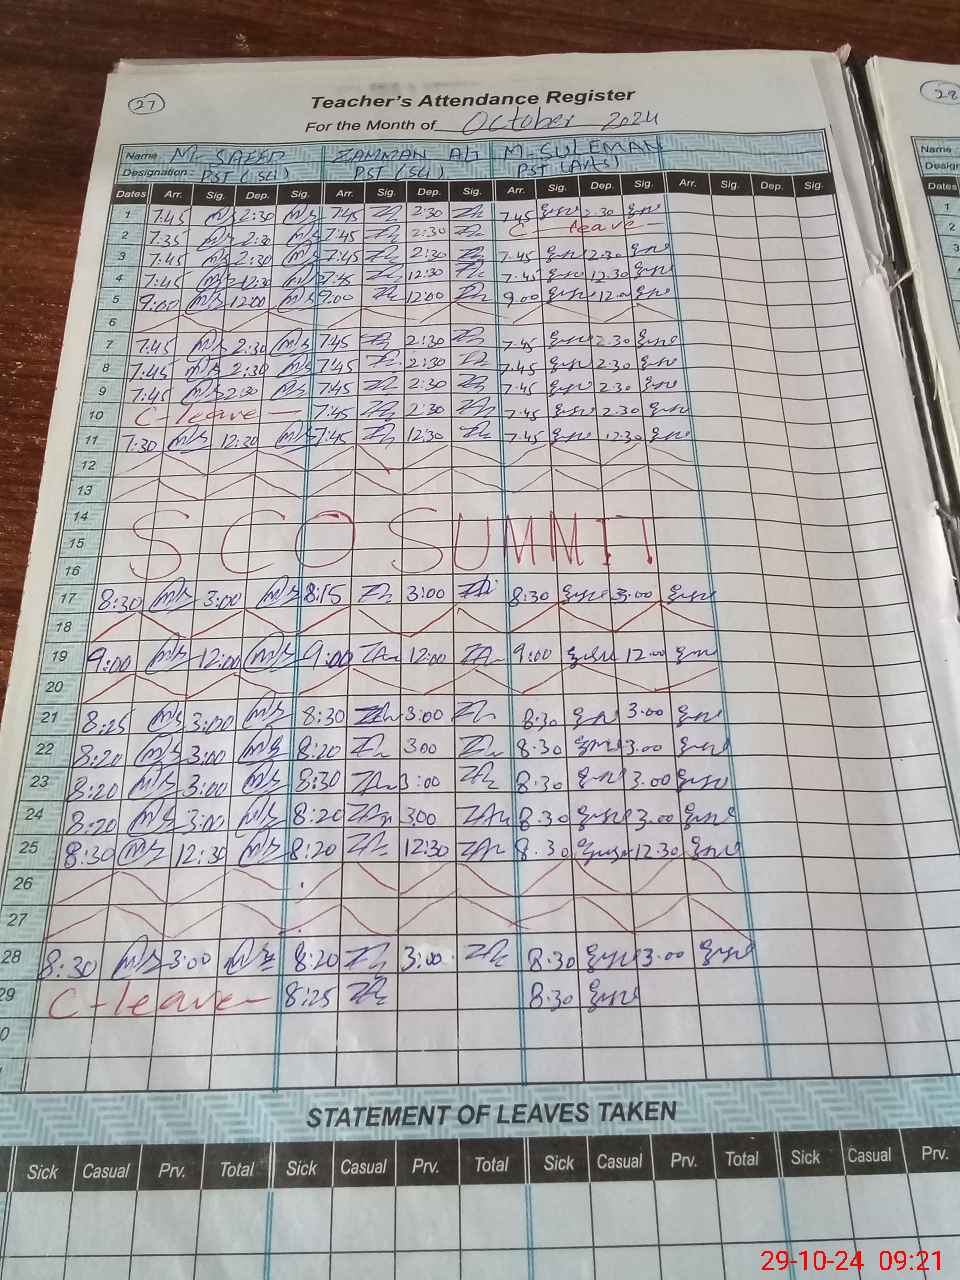 27
28
Teacher's Attendance Register
For the Month of October 2024
Name M. SAEED ZAMMAN ALI M. SULEMAN Name
Designation: PST (Sci) PST (Sci) PST (Arts) Design
Dates Arr. Sig. Dep. Sig. Arr. Sig. Dep. Sig. Arr. Sig. Dep. Sig. Arr. Sig. Dep. Sig. Dates
1 7:45 2:30 7:45 2:30 7.45 2.30 1
2 7:35 2:30 7:45 2:30 C - leave - 2
3 7:45 2:30 7:45 2:30 7.45 2.30 3
4 7:45 12:30 7:45 12:30 7.45 12.30
5 9:00 12:00 9:00 12:00 9.00 12.00
6
7 7:45 2:30 7:45 2:30 7.45 2.30
8 7:45 2:30 7:45 2:30 7.45 2.30
9 7:45 2:30 7:45 2:30 7.45 2.30
10 C-leave - 7:45 2:30 7.45 2.30
11 7:30 12:30 7:45 12:30 7.45 12.30
12
13
14
15 SCO SUMMIT
16
17 8:30 3:00 8:15 3:00 8.30 3.00
18
19 9:00 12:00 9:00 12:00 9:00 12.00
20
21 8:25 3:00 8:30 3:00 8.30 3.00
22 8:20 3:00 8:20 300 8.30 3.00
23 8:20 3:00 8:30 3:00 8.30 3.00
24 8:20 3:00 8:20 300 8.30 3.00
25 8:30 12:30 8:20 12:30 8.30 12.30
26
27
28 8:30 3:00 8:20 3:00 8.30 3.00
29 C-leave- 8:25 8.30
0
STATEMENT OF LEAVES TAKEN
Sick Casual Prv. Total Sick Casual Prv. Total Sick Casual Prv. Total Sick Casual Prv.
29-10-24 09:21